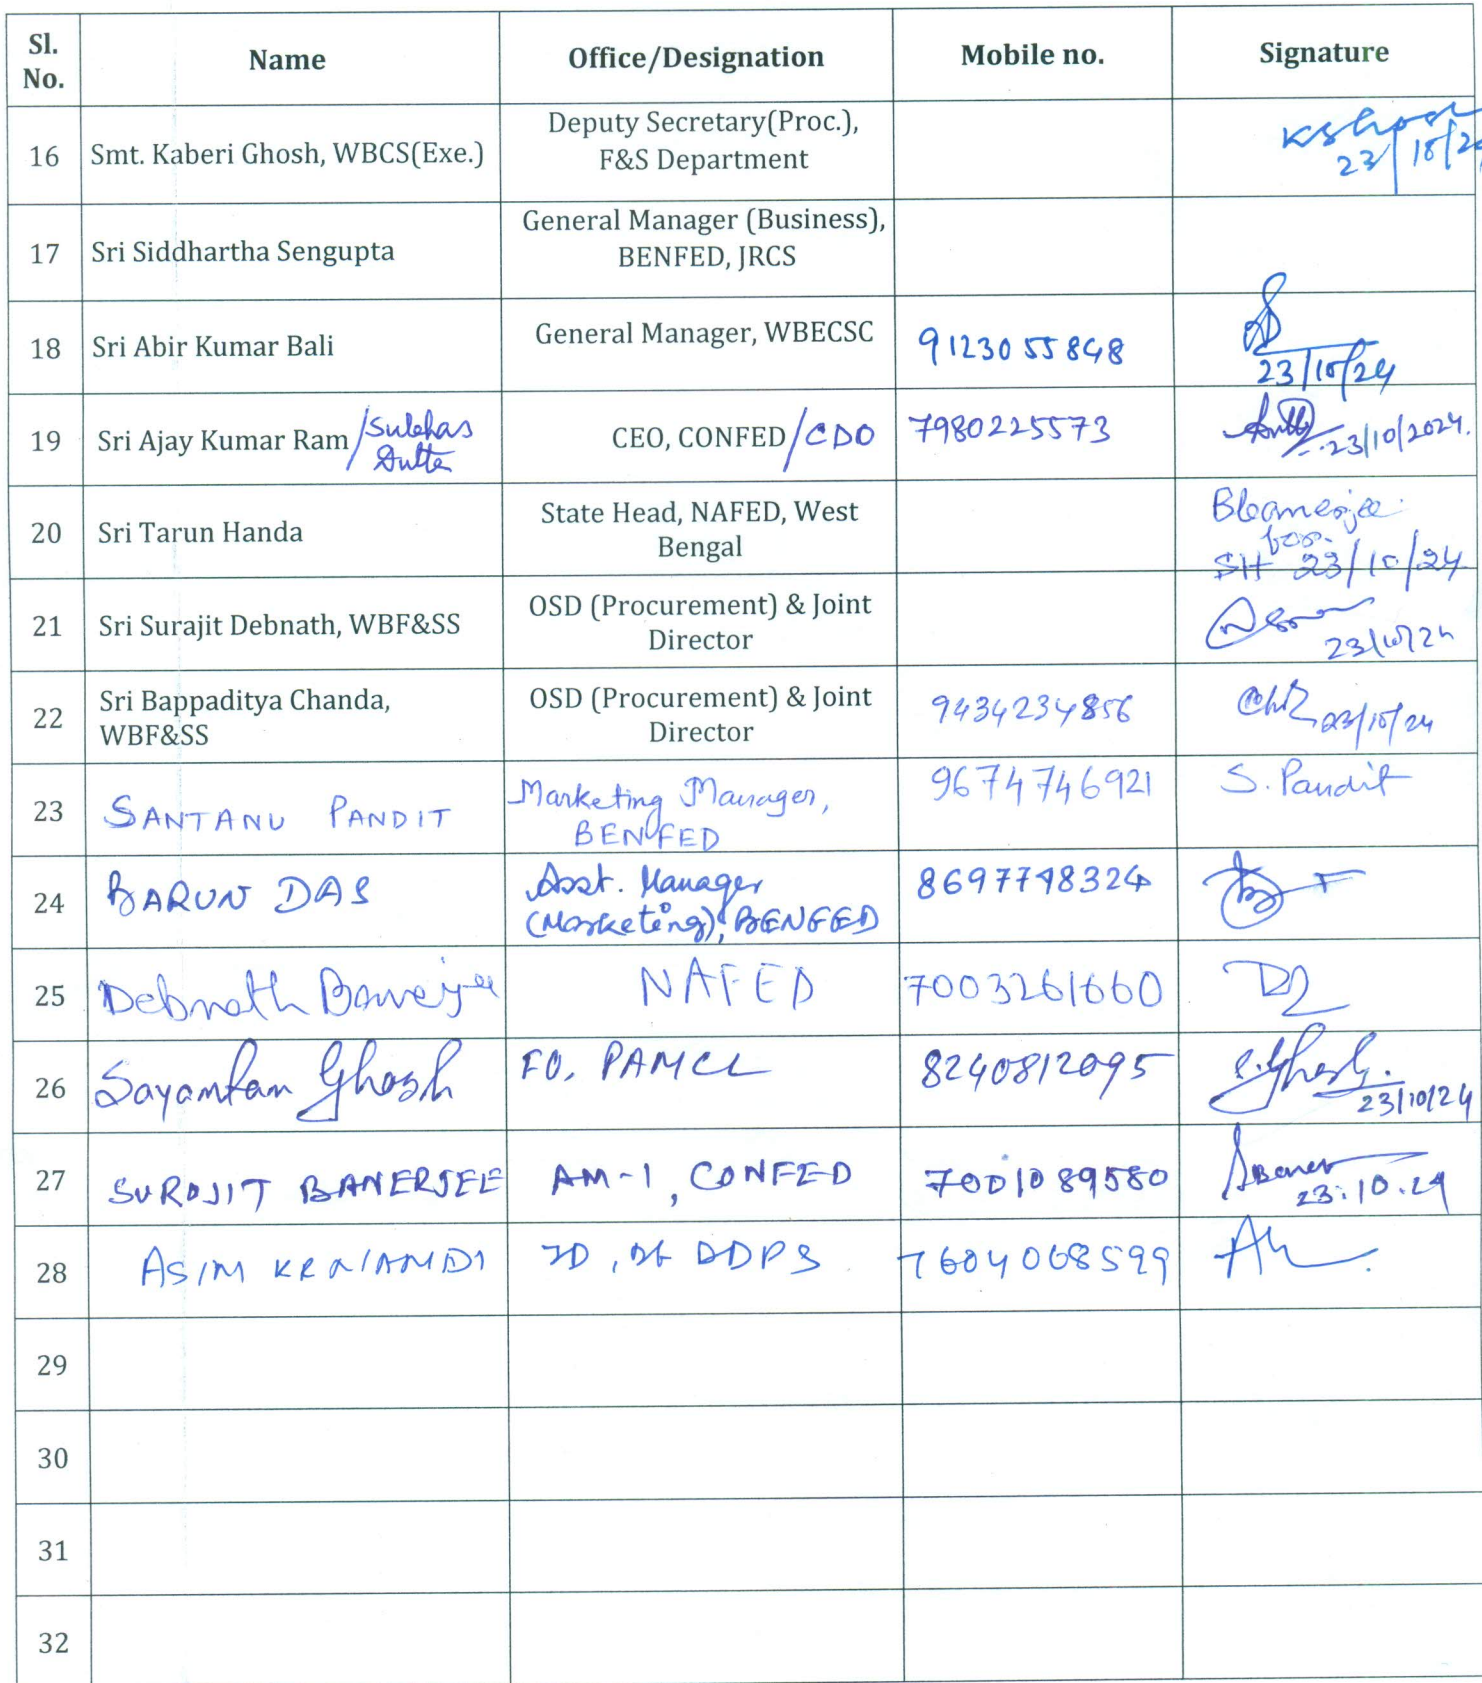 Sl. No. Name Office/Designation Mobile no. Signature
16 Smt. Kaberi Ghosh, WBCS(Exe.) Deputy Secretary(Proc.), F&S Department KSGhosh 23/10/24
17 Sri Siddhartha Sengupta General Manager (Business), BENFED, JRCS
18 Sri Abir Kumar Bali General Manager, WBECSC 9123055848 23/10/24
19 Sri Ajay Kumar Ram /Subhas Dutta CEO, CONFED /CDO 7980225573 23/10/2024.
20 Sri Tarun Handa State Head, NAFED, West Bengal for SH 23/10/24
21 Sri Surajit Debnath, WBF&SS OSD (Procurement) & Joint Director 23/10/24
22 Sri Bappaditya Chanda, WBF&SS OSD (Procurement) & Joint Director 9434234856 23/10/24
23 SANTANU PANDIT Marketing Manager, BENFED 9674746921 S. Pandit
24 BARUN DAS Asst. Manager (Marketing), BENFED 8697748324
25 Debnath Banerjee NAFED 7003261660
26 Sayantan Ghosh FO, PAMCL 8240812095 S.Ghosh. 23/10/24
27 SUROJIT BANERJEE AM-1, CONFED 7001089580 23.10.24
28 ASIM KR NANDI JD, DDPS 7604068599
29
30
31
32